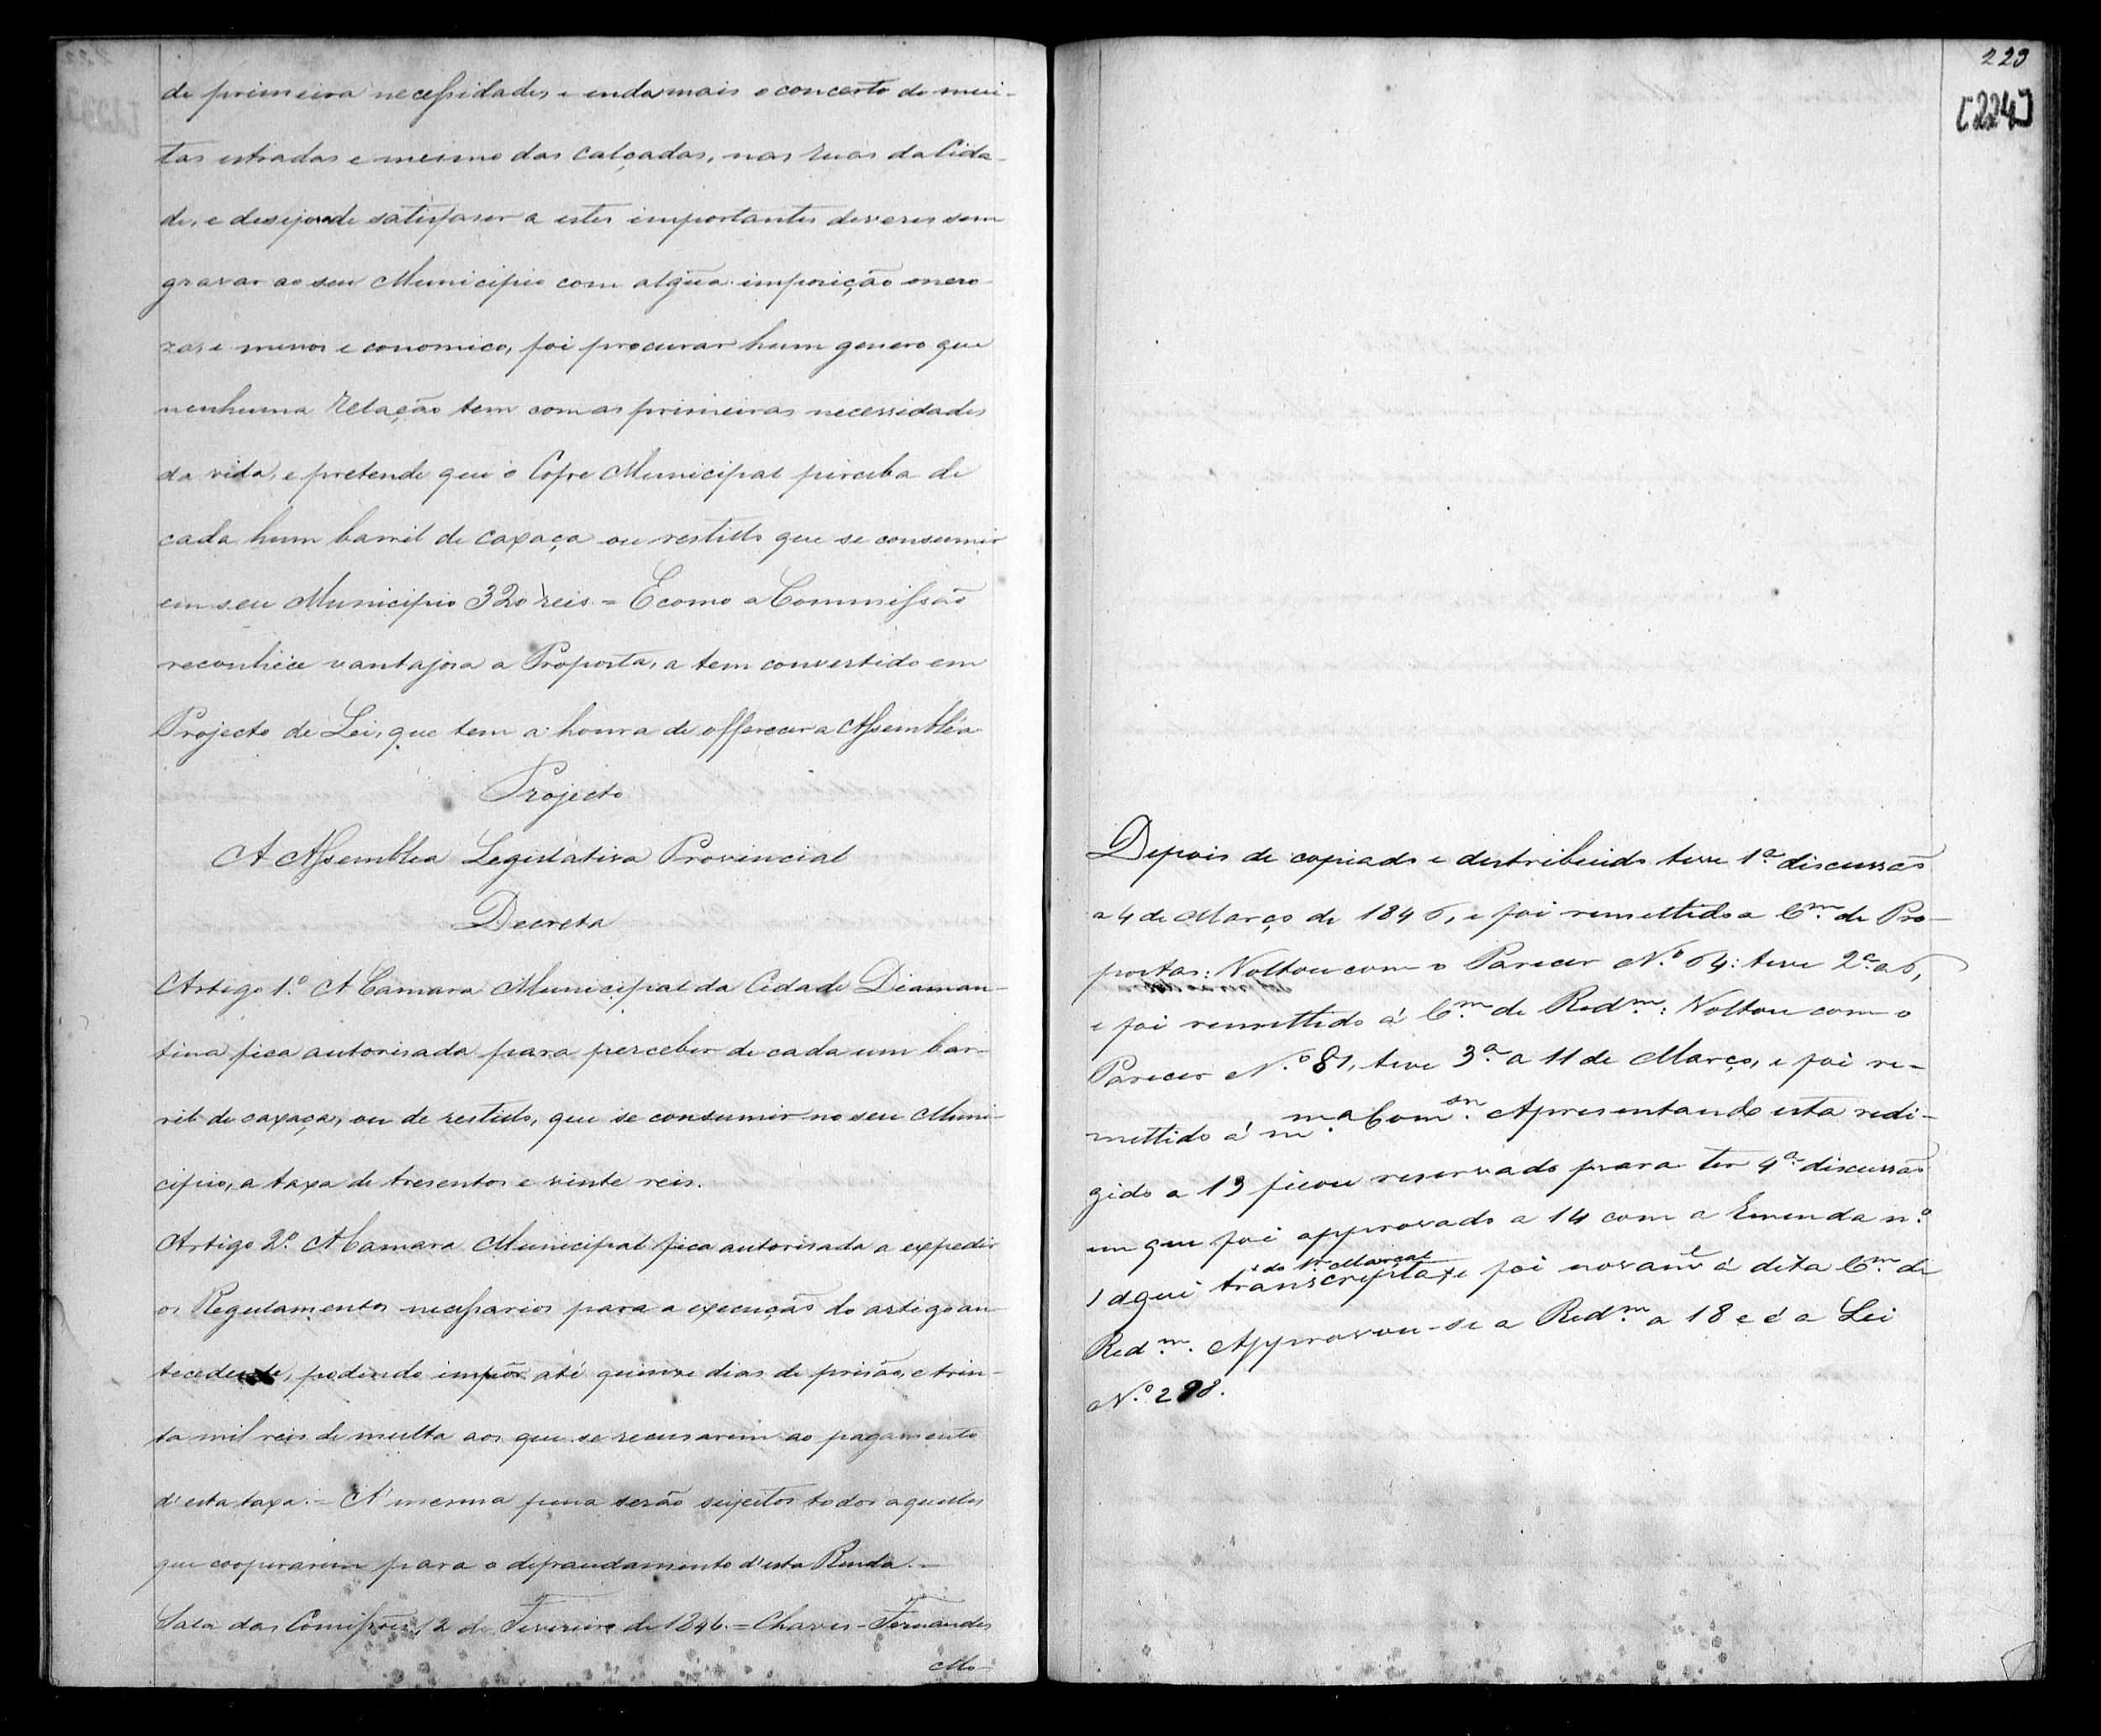 de primeira necessidades, e inda mais o concerto de mui-
tas estradas e mesmo das Calçadas, nas Ruas da Cida-
de, e desejando satisfaser a estes importantes deveres sem
gravar ao seu Municipio com algũa imposição onero-
za, e menos economico, foi procurar hum genero que
nenhuma Relação tem com as primeiras necessidades
da vida, e pretende que o Cofre Municipal perceba de
cada hum barril de Caxaça ou restillo que se consumir
em seu Municipio 320 reis. = E como a Commissão
reconhece vantajosa a Proposta, a tem convertido em
Projecto de Lei, que tem a honra de offerecer a Assembléa
Projecto
A Assemblea Legislativa Provincial
Decreta
Artigo 1.º A Camara Municipal da Cidade Diaman-
tina fica autorisada para perceber de cada um bar-
ril de caxaça, ou de restillo, que se consumir no seu Muni-
cipio, a taxa de tresentos e vinte reis.
Artigo 2.º A Camara Municipal fica autorisada a expedir
os Regulamentos necessarios para a execução do artigo an-
tecedente, podendo impôr até quinze dias de prisão, e trin-
ta mil reis de multa aos que se recusarem ao pagamento
d'esta taxa. = A' mesma pena serão sujeitos todos aquelles
que cooperarem para o defraudamento d'esta Renda. =
Sala das Comissões, 12 de Fevereiro de 1846. = Chaves - Fernandes
Mo-
223
[224]
Depois de copiado e distribuido teve 1.ª discussão
a 4 de Março de 1846, e foi remettido a C.m de Pro-
postas: Voltou com o Parecer N.º 64: teve 2.ª a 6,
e foi remettido á C.m de Red.m: Voltou com o
Parecer N.º 81, teve 3.ª a 11 de Março, e foi re-
mettido á m.ma Com.sn. Apresentando esta redi-
gido a 13 ficou reservado para ter 4.ª discussão
em que foi approvado a 14 com a Emenda n.º
e do Sr. Marçal
1 aqui transcripta, e foi novam.e á dita C.m de
Red.m. Approvou-se a Red.m a 18 e é a Lei
N.º 298.